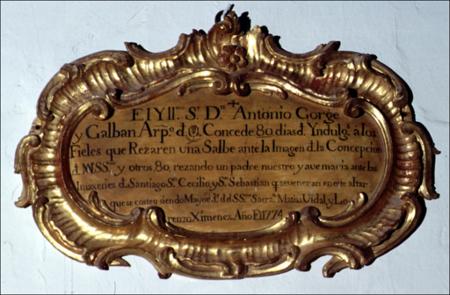 EIYll.e S.r D.n Antonio Gorge
y Galban Arp.o d. G.a Concede 80 dias d. Yndulg.a a los
Fieles que Rezaren una Salbe ante la Imagen d. la Concepcion
d. NSS.a y otros 80, rezando un padre nuestro y ave maria ante las
Imagenes d. Santiago S.n Cecilio y S.n Sebastian q. se veneran en este altar
que se costeo siendo Mayor.mo del SS.mo Sacr.to Matias Vidal y Lo-
renzo Ximenez. Año D. 1774